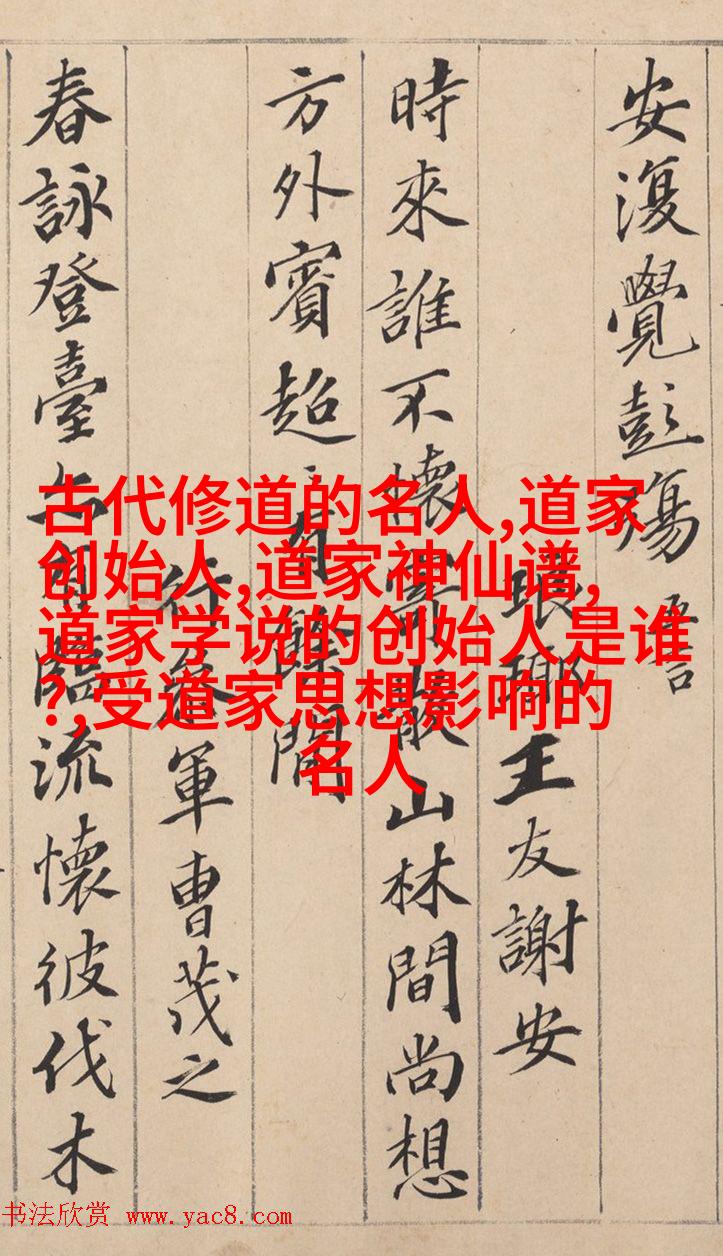 安復覺彭殤
琅耶王友謝安
時來誰不懷寄散山林間尚想
方外賓超〻有餘閒
行參軍曹茂之
春詠登臺亦有臨流懷彼伐木
古代修道的名人,道家
创始人,道家神仙谱,
道家学说的创始人是谁
?,受道家思想影响的
名人
书法欣赏 www.yac8.com